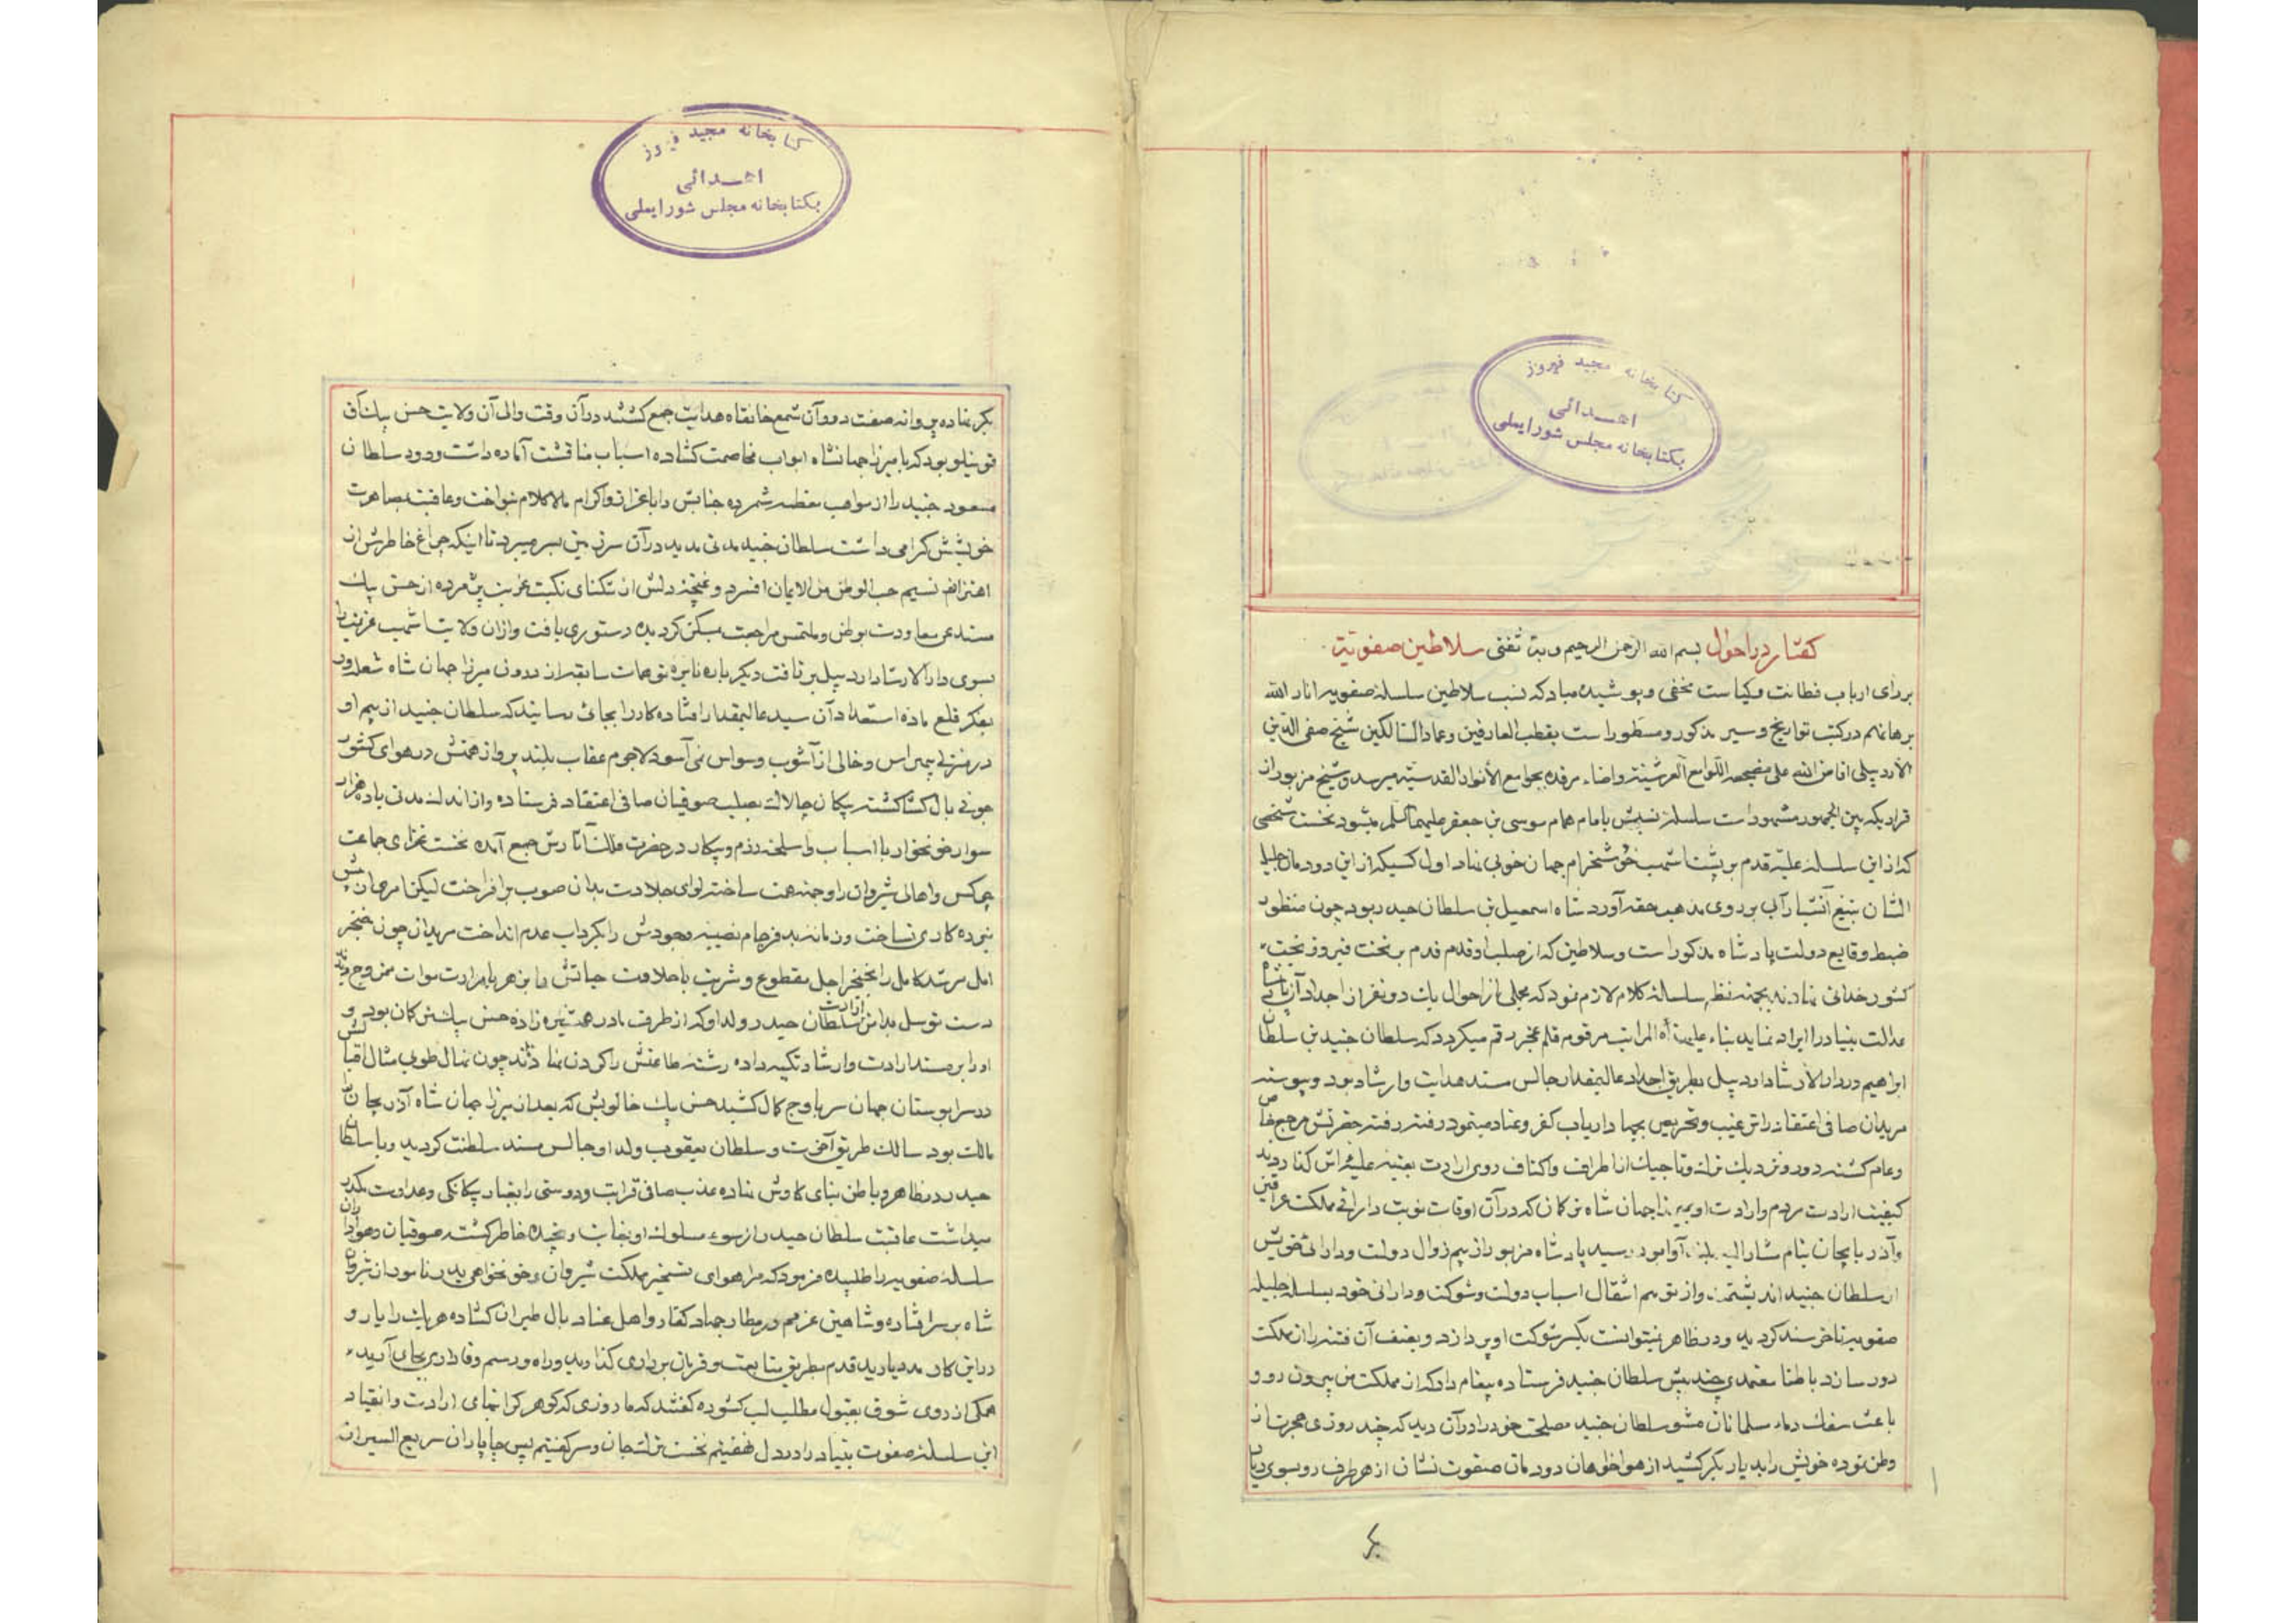 کتابخانه مجید فیروز
اهدائی
بکتابخانه مجلس شورایملی
کفتار در احوال بسم الله الرحمن الرحیم وبه ثقتی سلاطین صفویّه
بر رای ارباب فطانت و کیاست مخفی و پوشیده مباد که نسب سلاطین سلسله صفویه انار الله
برهانهم در کتب تواریخ و سیر مذکور و مسطور است بقطب العارفین و عماد السالکین شیخ صفی الدین
الاردبیلی افاض الله علی مضجعه اللوامع العرشیته واضاء مرقده بجوامع الأنوار القدسیته میرسد و شیخ مزبور از
قراریکه بین الجمهور مشهور است سلسلهٔ نسبش بامام همام موسی بن جعفر علیهما السلم میشود نخست شخصی
که از این سلسله علیّه قدم بر پشت اشهب خوشخرام جهان خوبی نهاد اول کسیکه از این دودمان جلیل
الشان بتیغ آتشبار آب بر روی مذهب حقه آورد شاه اسمعیل بن سلطان حیدر بود چون منظور
ضبط وقایع دولت پادشاه مذکور است و سلاطین که از صلب او قدم قدم بر تخت فیروز بخت
کشور خدائی نهادند بجهته نظم سلسله کلام لازم نمود که مجملی از احوال یک دو نفر از اجداد آن پادشاه
عدالت بنیاد را ایراد نماید بناء علی هذه المراتب مرقوم قلم عنبر رقم میکردد که سلطان جنید بن سلطان
ابراهیم در دار الارشاد اردبیل بطریق اجداد عالیمقدار جالس مسند هدایت و ارشاد بود و پیوسته
مریدان صافی اعتقاد را ترغیب و تحریص بجهاد ارباب کفر و عناد مینمود رفته رفته حضرتش مرجع خاص
و عام کشته دور و نزدیک ترک و تاجیک از اطراف و اکناف روی ارادت بعتبه علیه اش کذاردند
کیفیت ارادت مردم و ارادت او بمیرزا جهان شاه ترکمان که در آن اوقات نوبت دارائی مملکت عراقین
و آذربایجان بنام مشار الیه بلند آوا بود رسید پادشاه مزبور از بیم زوال دولت و دارائی خویش
از سلطان جنید اندیشمند و از توهم انتقال اسباب دولت و شوکت و دارائی خود بسلسله جلیله
صفویه ناخرسند کردید و در ظاهر نمیتوانست بکسر شوکت او پردازد و بعنف آن فتنه را از مملکت
دور سازد باطنا معتمدی چند پیش سلطان جنید فرستاده پیغام داد که از مملکت من بیرون رو و
باعث سفک دماء مسلمانان مشو سلطان جنید مصلحت خود را در آن دید که چند روزی هجرت از
وطن نموده خویش را بدیار بکر کشید از هواخواهان دودمان صفوت نشان از هر طرف رو بسوی دیار
بکر
کتابخانه مجید فیروز
اهدائی
بکتابخانه مجلس شورایملی
بکر نهاده پروانه صفت دور آن شمع خانقاه هدایت جمع کشتند در آن وقت والی آن ولایت حسن بیک آق
قوینلو بود که با میرزا جهانشاه ابواب مخاصمت کشاده اسباب مناقشت آماده داشت ورود سلطان
مسعود جنید را از مواهب عظمه شمرده جنابش را باعزاز و اکرام مالا کلام نواخت و عاقبت بمصاهرت
خویشش کرامی داشت سلطان جنید مدتی مدید در آن سرزمین بسر میبرد تا اینکه چراغ خاطرش از
اهتزاز نسیم حب الوطن من الایمان افسرد و غنچهٔ دلش از تنکنای نکبت غربت پژمرده از حسن بیک
مستدعی معاودت بوطن و ملتمس مراجعت بمسکن کردیده دستوری یافت و از آن ولایت اشهب عزیمت را
بسوی دار الارشاد اردبیل برتافت دیکر باره نایره توهمات سابقه از درون میرزا جهان شاه شعله ور
بفکر قلع ماده استعداد آن سید عالیمقدار افتاده کار را بجائی رسانید که سلطان جنید از بیم او
در منزلی بیهراس و خالی از آشوب وسواس نمی آسود لاجرم عقاب بلند پرواز همتش در هوای کشور
جوئی بال کشا کشته پیکان چالاک بطلب صوفیان صافی اعتقاد فرستاده و از اندک مدتی با ده هزار
سوار خونخوار با اسباب و اسلحه رزم و پیکار در حضرت ملک آثارش جمع آمده نخست غزای جماعت
چرکس و اهالی شیروان را وجهه همت ساخته لوای جلادت بدان صوب برافراخت لیکن امر جهان پیش
نبرده کاری نساخت و زمانه بد فرجام نصیبه وجودش را بکرداب عدم انداخت مریدان چون خنجر
امل مرشد کامل را بخنجر اجل مقطوع و شربت با حلاوت حیاتش را بزهر با مرارت موات ممزوج دیدند
دست توسل بدامن ارادت سلطان حیدر ولد او که از طرف مادر همشیره زاده حسن بیک ترکمان بود و
او را بر مسند ارادت و ارشاد تکیه داده رشته طاعتش را کردن نهادند چون نهال طوبی مثال اقبالش
در سرابوستان جهان سر باوج کمال کشید حسن بیک خالویش که بعد از میرزا جهان شاه آذربیجان را
مالک بود سالک طریق آخرت و سلطان یعقوب ولد او جالس مسند سلطنت کردید و با سلطان
حیدر در ظاهر و باطن بنای کاوش نهاده عذب صافی قرابت و دوستی را بغبار بیکانکی و عداوت مکدر
میداشت عاقبت سلطان حیدر از سوء سلوک او بغایت رنجیده خاطر کشته صوفیان و هواداران
سلسله صفویه را طلبیده فرمود که مرا هوای تسخیر مملکت شیروان و خونخواهی پدر نامور از شروان
شاه بر سر افتاده و شاهین عزمم در مطار جهاد کفار و اهل عناد بال طیران کشاده هر یک را یار و
در این کار مدد یارید قدم بطریق متابعت و فرمان برداری کذارید و راه و رسم وفاداری بجای آرید
همکی از روی شوق بقبول مطلب لب کشوده کفتند که ما روزی که کوهر کرانمای ارادت و انقیاد
این سلسله صفوت بنیاد را در دل نهفتیم نخست ترک جان و سر کفتیم پس چاپاران سریع السیر از